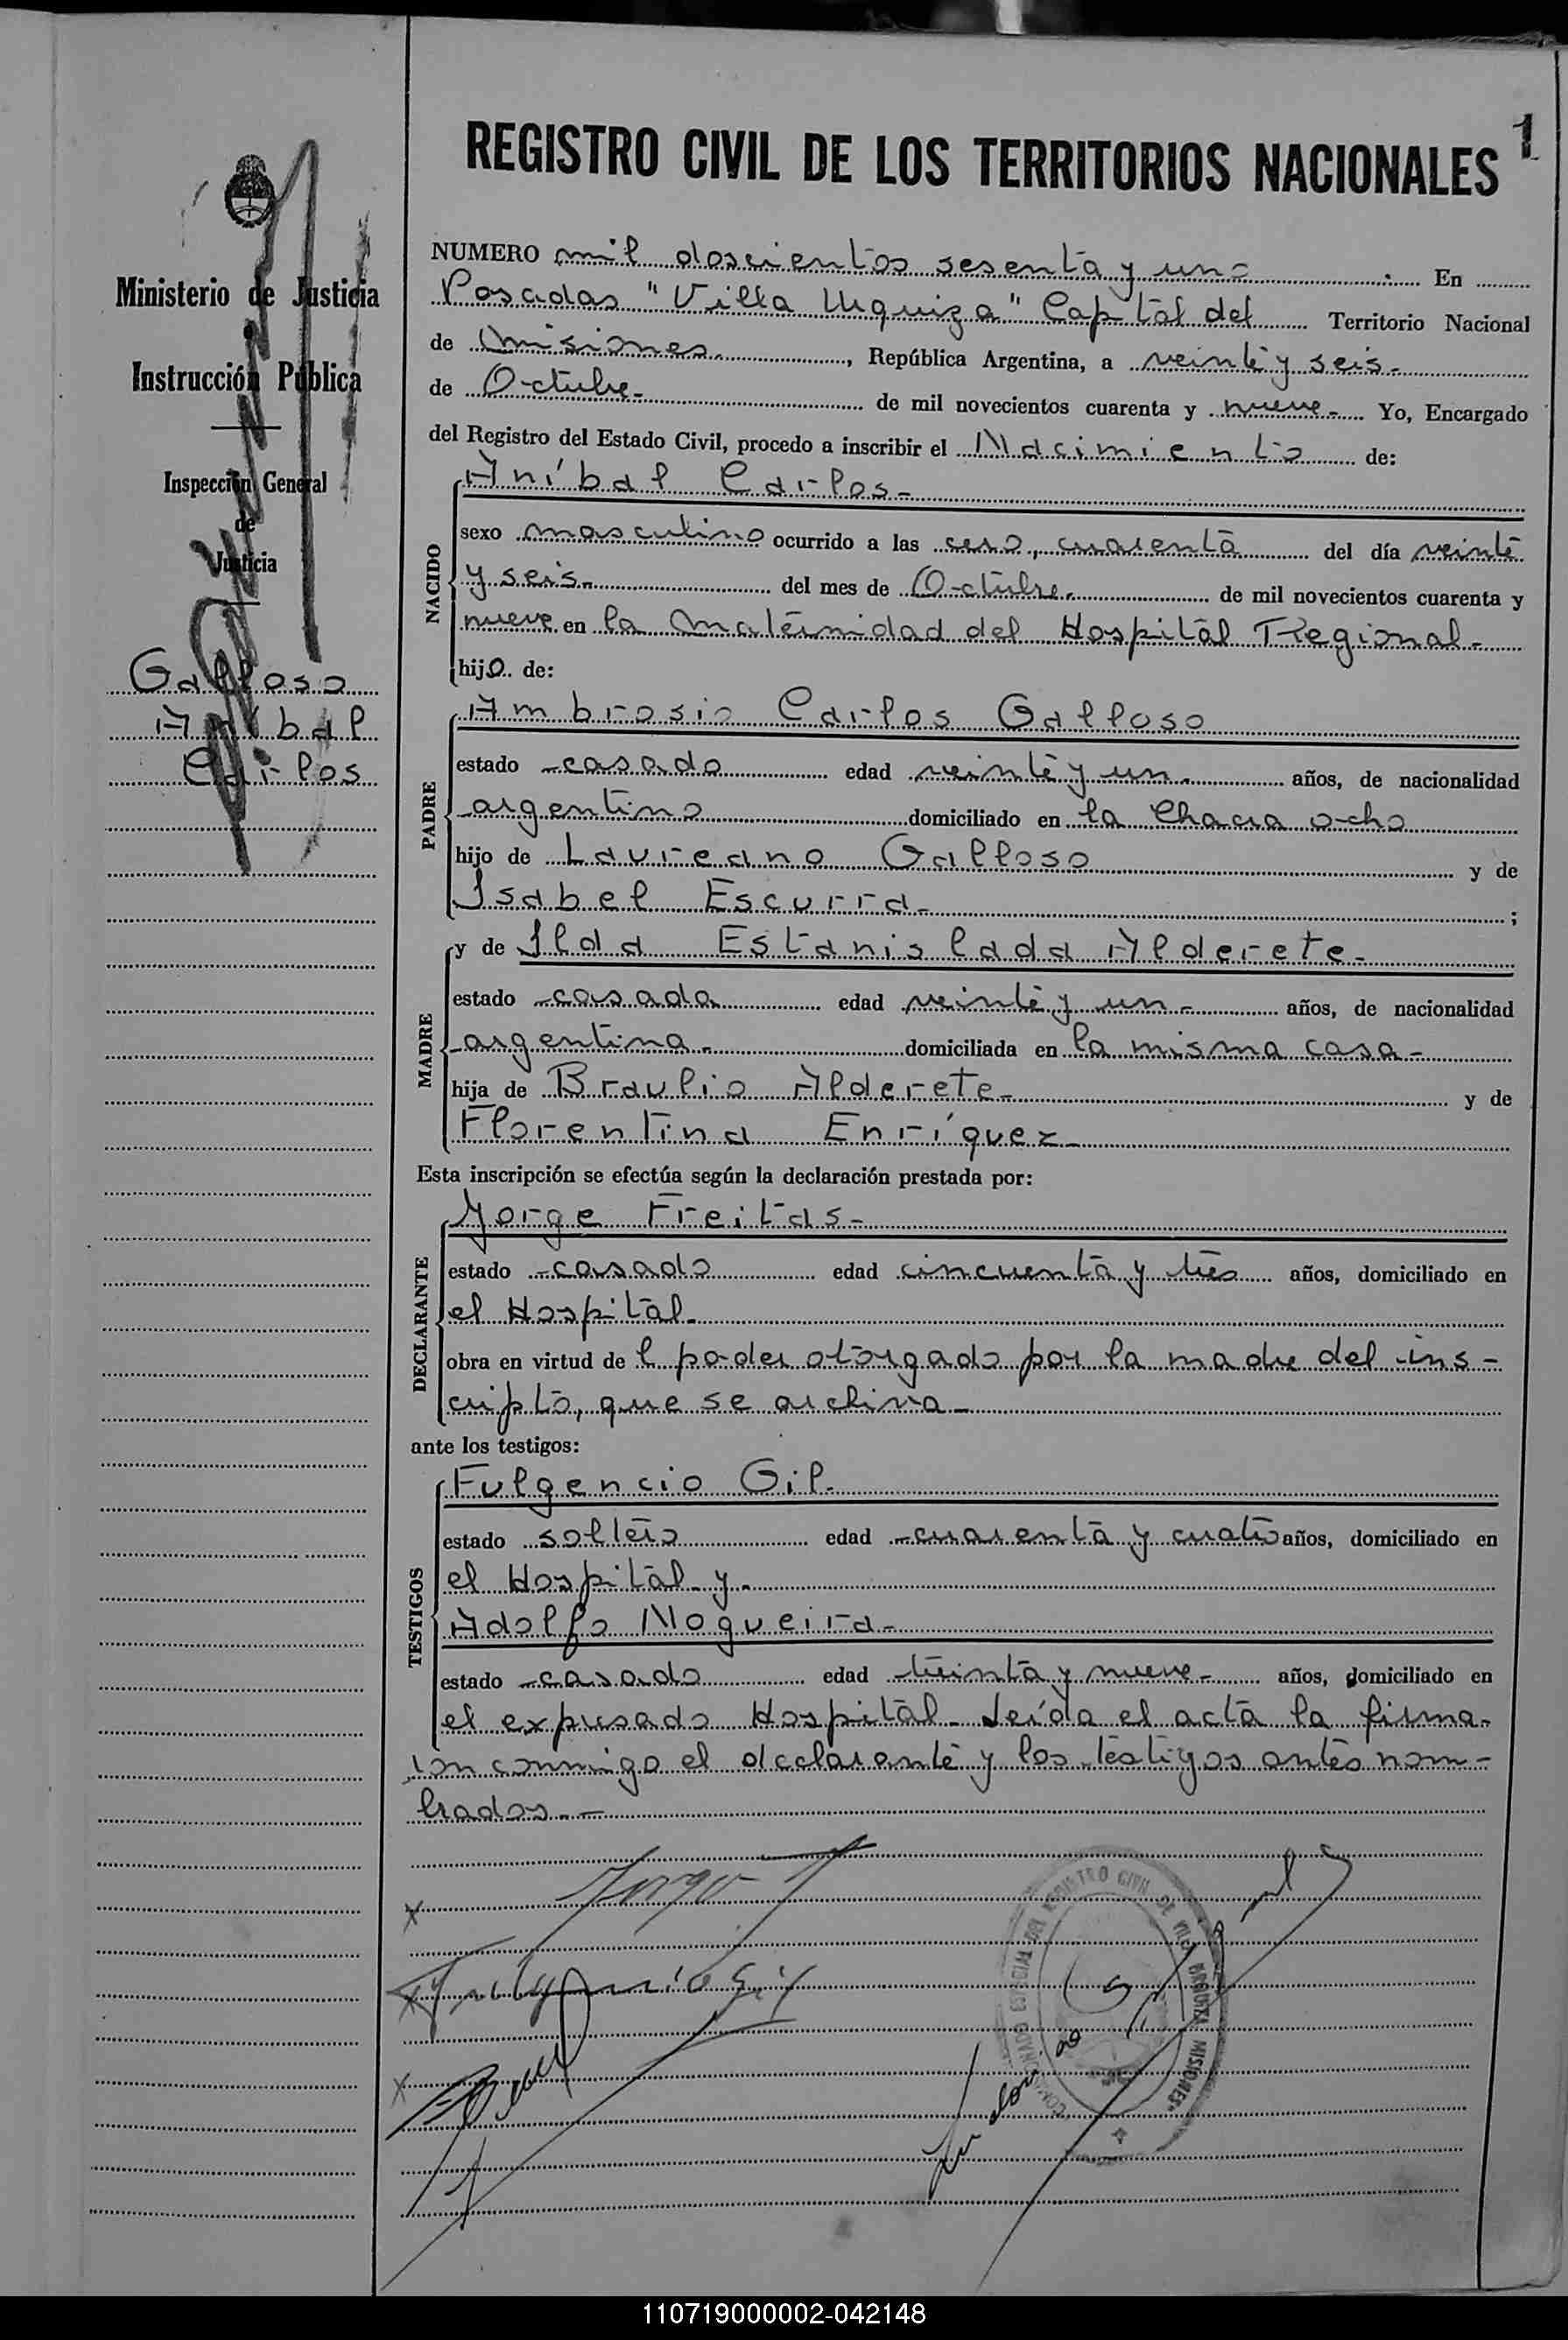 1
REGISTRO CIVIL DE LOS TERRITORIOS NACIONALES
Ministerio de Justicia
Instrucción Pública
Inspección General
de
Justicia
Galloso
Aníbal
Carlos
NUMERO mil doscientos sesenta y uno. En
Posadas "Villa Urquiza" Capital del Territorio Nacional
de Misiones, República Argentina, a veinte y seis
de Octubre de mil novecientos cuarenta y nueve. Yo, Encargado
del Registro del Estado Civil, procedo a inscribir el Nacimiento de:
NACIDO
Aníbal Carlos
sexo masculino ocurrido a las cero, cuarenta del día veinte
y seis del mes de Octubre de mil novecientos cuarenta y
nueve en la Maternidad del Hospital Regional
hijo de:
PADRE
Ambrosio Carlos Galloso
estado casado edad veinte y un años, de nacionalidad
argentino domiciliado en la Chacra ocho
hijo de Laureano Galloso y de
Isabel Escurra ;
MADRE
y de Ilda Estanislada Alderete
estado casada edad veinte y un años, de nacionalidad
argentina domiciliada en la misma casa
hija de Braulio Alderete y de
Florentina Enríquez
Esta inscripción se efectúa según la declaración prestada por:
DECLARANTE
Jorge Freitas
estado casado edad cincuenta y tres años, domiciliado en
el Hospital
obra en virtud del poder otorgado por la madre del ins-
cripto, que se archiva
ante los testigos:
TESTIGOS
Fulgencio Gil
estado soltero edad cuarenta y cuatro años, domiciliado en
el Hospital y
Adolfo Nogueira
estado casado edad treinta y nueve años, domiciliado en
el expresado Hospital. Leída el acta la firma-
ron conmigo el declarante y los testigos antes nom-
brados.
x Jorge
x Fulgencio Gil
x
REGISTRO CIVIL DE VILLA URQUIZA MISIONES
110719000002-042148